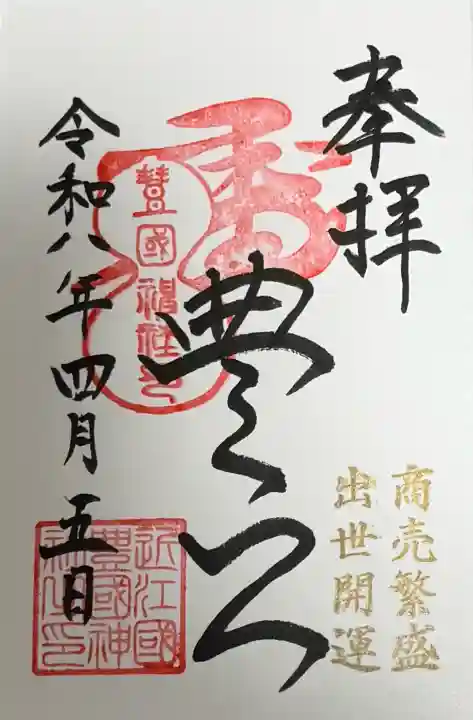 奉拝
商売繁盛
出世開運
豊公
豊國神社印
令和八年四月五日
近江國
豊國神
社之印